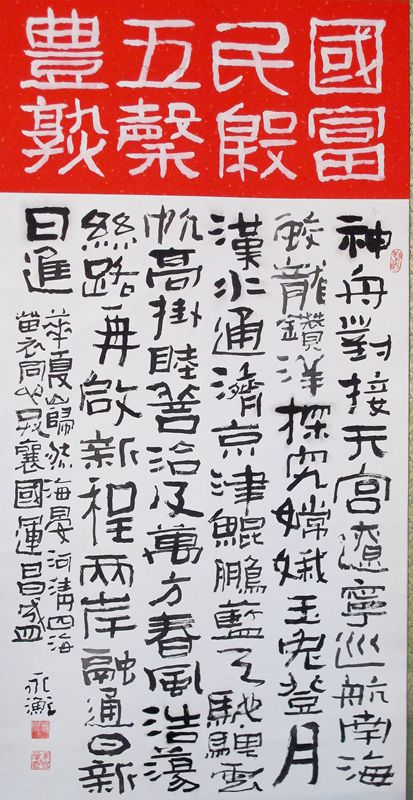 國富
民殷
五穀
豊熟
神舟對接天宮遼寧巡航南海
蛟龍鑽洋探究嫦娥玉兔登月
漢水通濟京津鯤鵬藍天馳騁雲
帆高掛睦善洽及萬方春風浩蕩
絲路再啟新程兩岸融通日新
日進
華夏巋然海晏河清四海
苗裔同心共襄國運昌盛
永